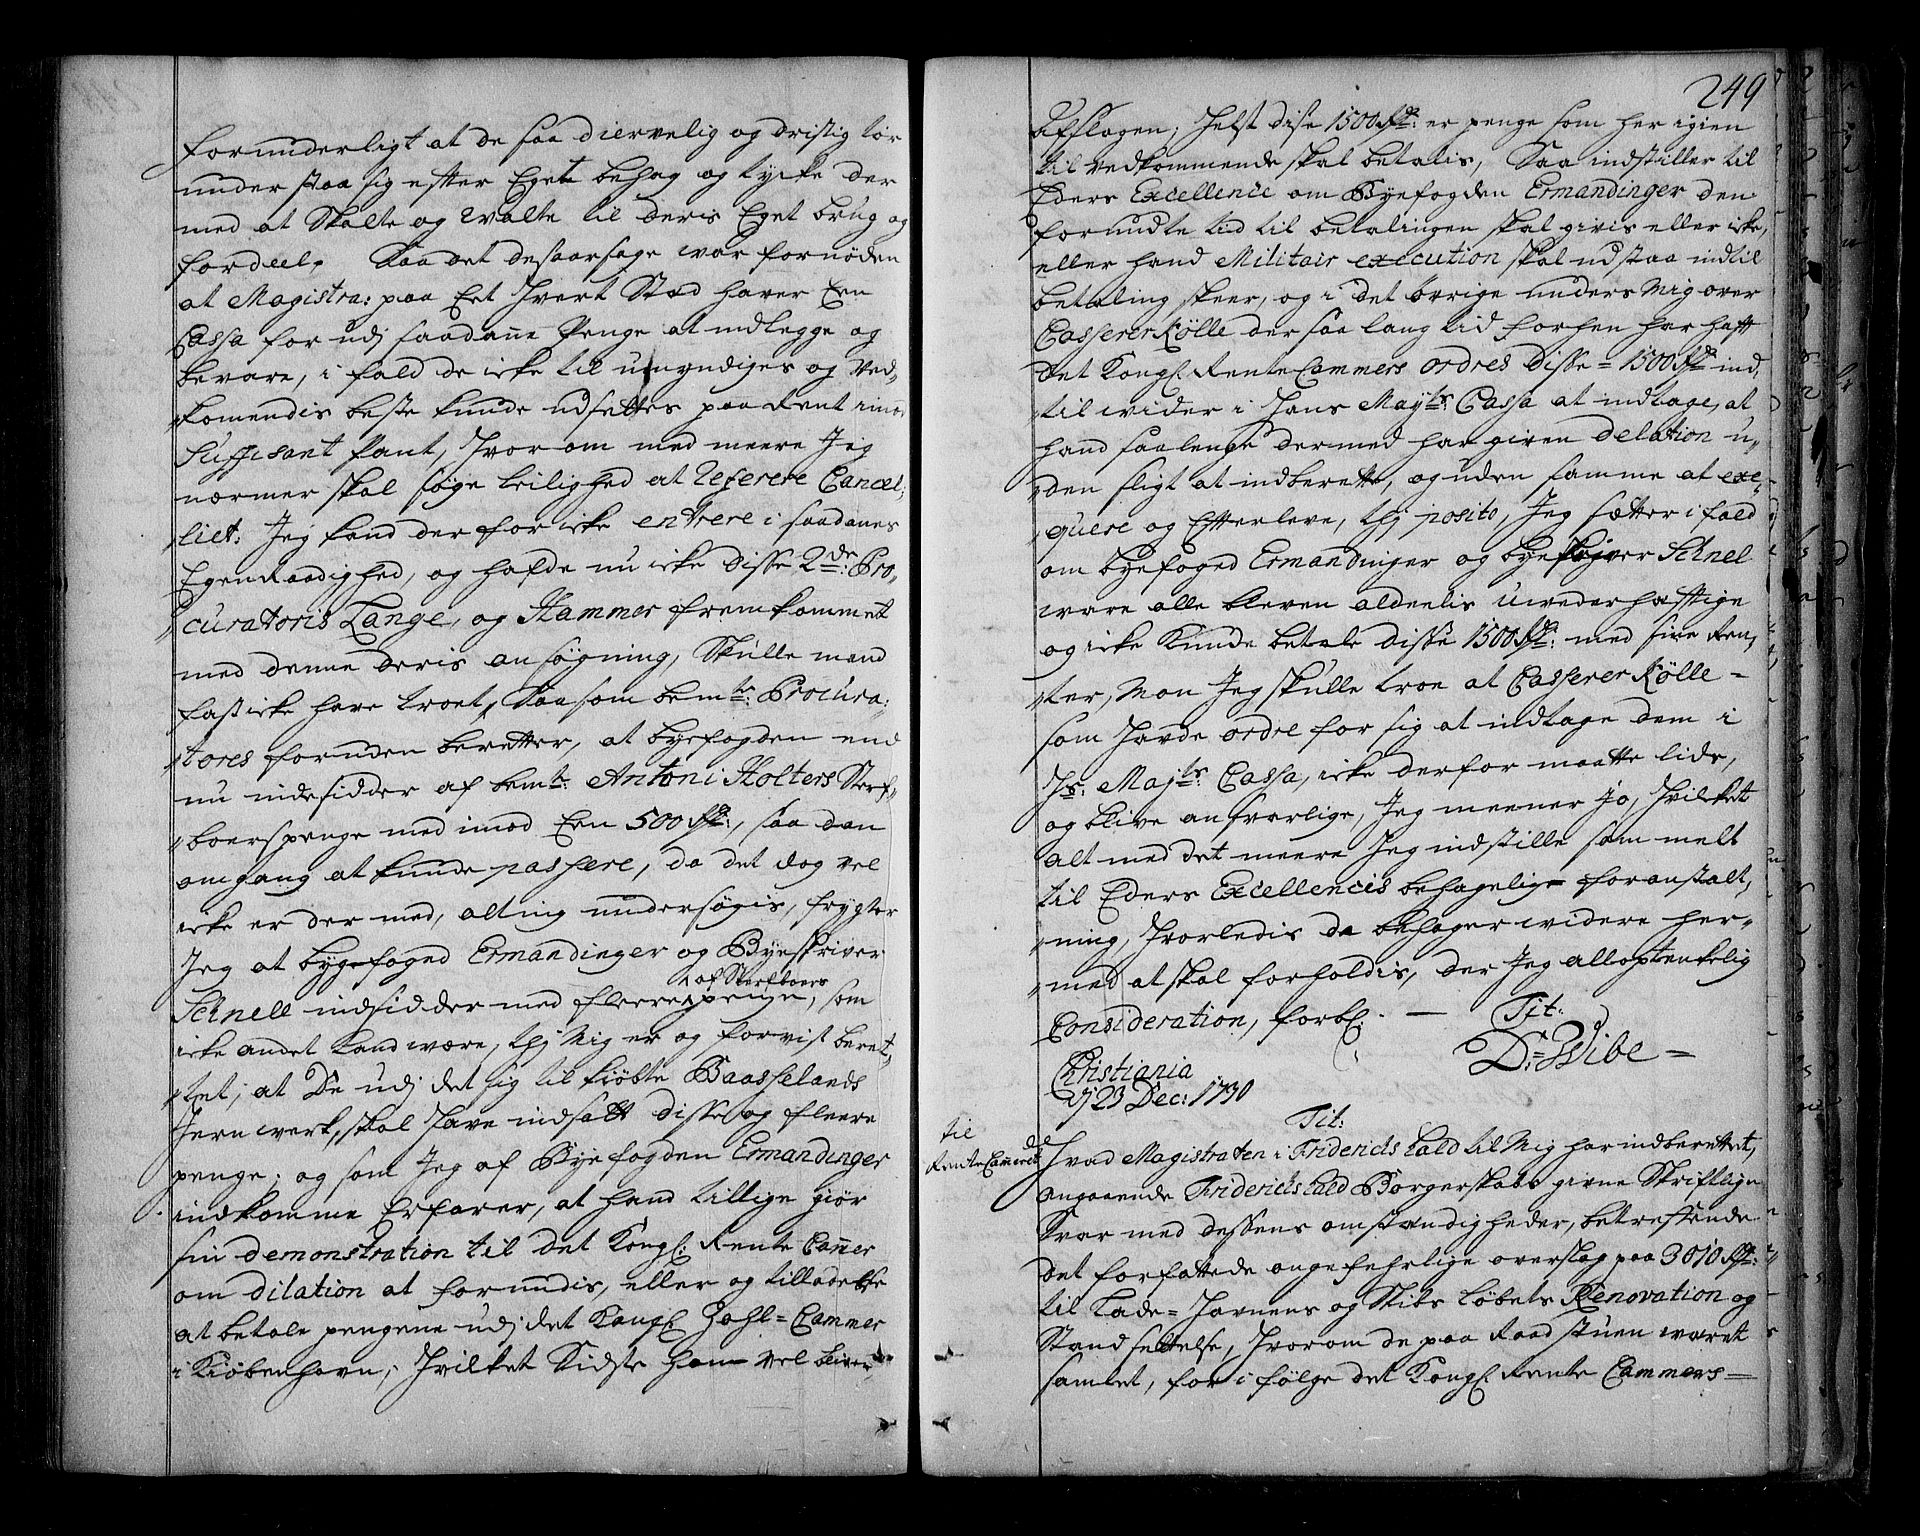 forunderligt at de saa diervelig og dristig tør
understaa sig efter Eget behag og tycke der
med at Skalte og Walte til deris Eget brug og
fordeel. Saa det desaarsage war fornøden
at Magistra: paa Eet hvert Stæd haver Een
Cassa for udj saadanne Penge at indlegge og
bevare, i fald de icke til umyndiges og Ved-
komendis beste kunde udsettes paa Rent imod
Suffisant Pant, hvor om med meere Jeg
nærmer skal søge leilighed at Referere Cancel-
liet: Jeg kand der for icke entrere i saadanne
Egenraadighed, og hafde nu icke disse 2de: Pro-
curatoris Lange, og Hammer fremkommet
med denne deris ansøgning, Skulle mand
fast icke have troet, Saasom bemte: Procura-
tores foruden beretter, at byefogden end
nu indesidder af bemte: Antoni Holters Sterf-
boerspenge med imod Een 500 Rdr:, saa den
omgang at kunde passere, da det dog vel
icke er der med, alting undersøgis, frygter
Jeg at byefoged Ermandinger og Byeskriver
Schnell indsidder med fleere af Sterfboers penge, som
icke andet kand wære, thj Mig er og forvist beret-
tet, at De udj det sig til kiøbte Baasselands
Jernwerk, skal have indsatt disse og fleere
penge; og som Jeg af Byefogden Ermandinger
indkomme Erfarer, at hand tillige giør
sin demonstration til det Kongl: Rente Cammer
om dilation at forundis, eller og tilladelse
at betale pengene udj det Kongl Zahl-Cammer
i Kiøbenhavn; hvilket Sidste ham vel bliver
249
Afslagen; helst disse 1500 Rdr: er penge som her igien
til vedkommende skal betalis, Saa indstiller til
Eders Excellence om Byefogden Ermandinger den
forundte tid til betalingen skal givis eller icke,
eller hand Militair execution skal udstaa indtil
betaling skeer, og i det øvrige undres Mig over
Casserer Kølle der saa lang tid forhen har hafft
det Kongl Rente Cammers ordres Disse = 1500 Rdr ind,
til wider i Hans Mayts: Cassa at indtage, at
hand saalenge dermed har given delation u-
den sligt at indberette, og uden samme at exe-
quere og Efterleve, thj posito, Jeg sætter i fald
om byefoged Ermandinger og byeskriver Schnel
ware alle bleven aldeelis uwederhæfftige
og icke Kunde betale disse 1500 Rdr: med sine Ren-
ter, Mon Jeg skulle troe at Casserer Kølle -
som havde ordre for sig at indtage dem i
Hs: Majts: Cassa, icke derfor maatte lide,
og blive ansvarlige, Jeg meener Jo, hvilket
alt med det meere Jeg indstille som melt
til Eders Excellencis behagelige foranstalt-
ning, hvorledis da behager widere her-
med at skal forholdis, der Jeg alloptenkelig
Consideration, forbl: - Tit:
D: Wibe =
Christiania
dj 23 Dec: 1730
Tit:
til
Rente Cammeret
Hvad Magistraten i Friderichs hald til Mig har indberettet,
angaaende Friderichshald Borgerskabs givne Skriftlige
Svar med dessens omstændigheder, betreffende
det forfattede ongefehrlige overslag paa 3010 Rdr:
til Lade-Havnens og Stibs løbets Renovation og
Stand settelse, hvorom de paa Raadstuen waret
samlet, for i følge det Kongl Rente Cammers -